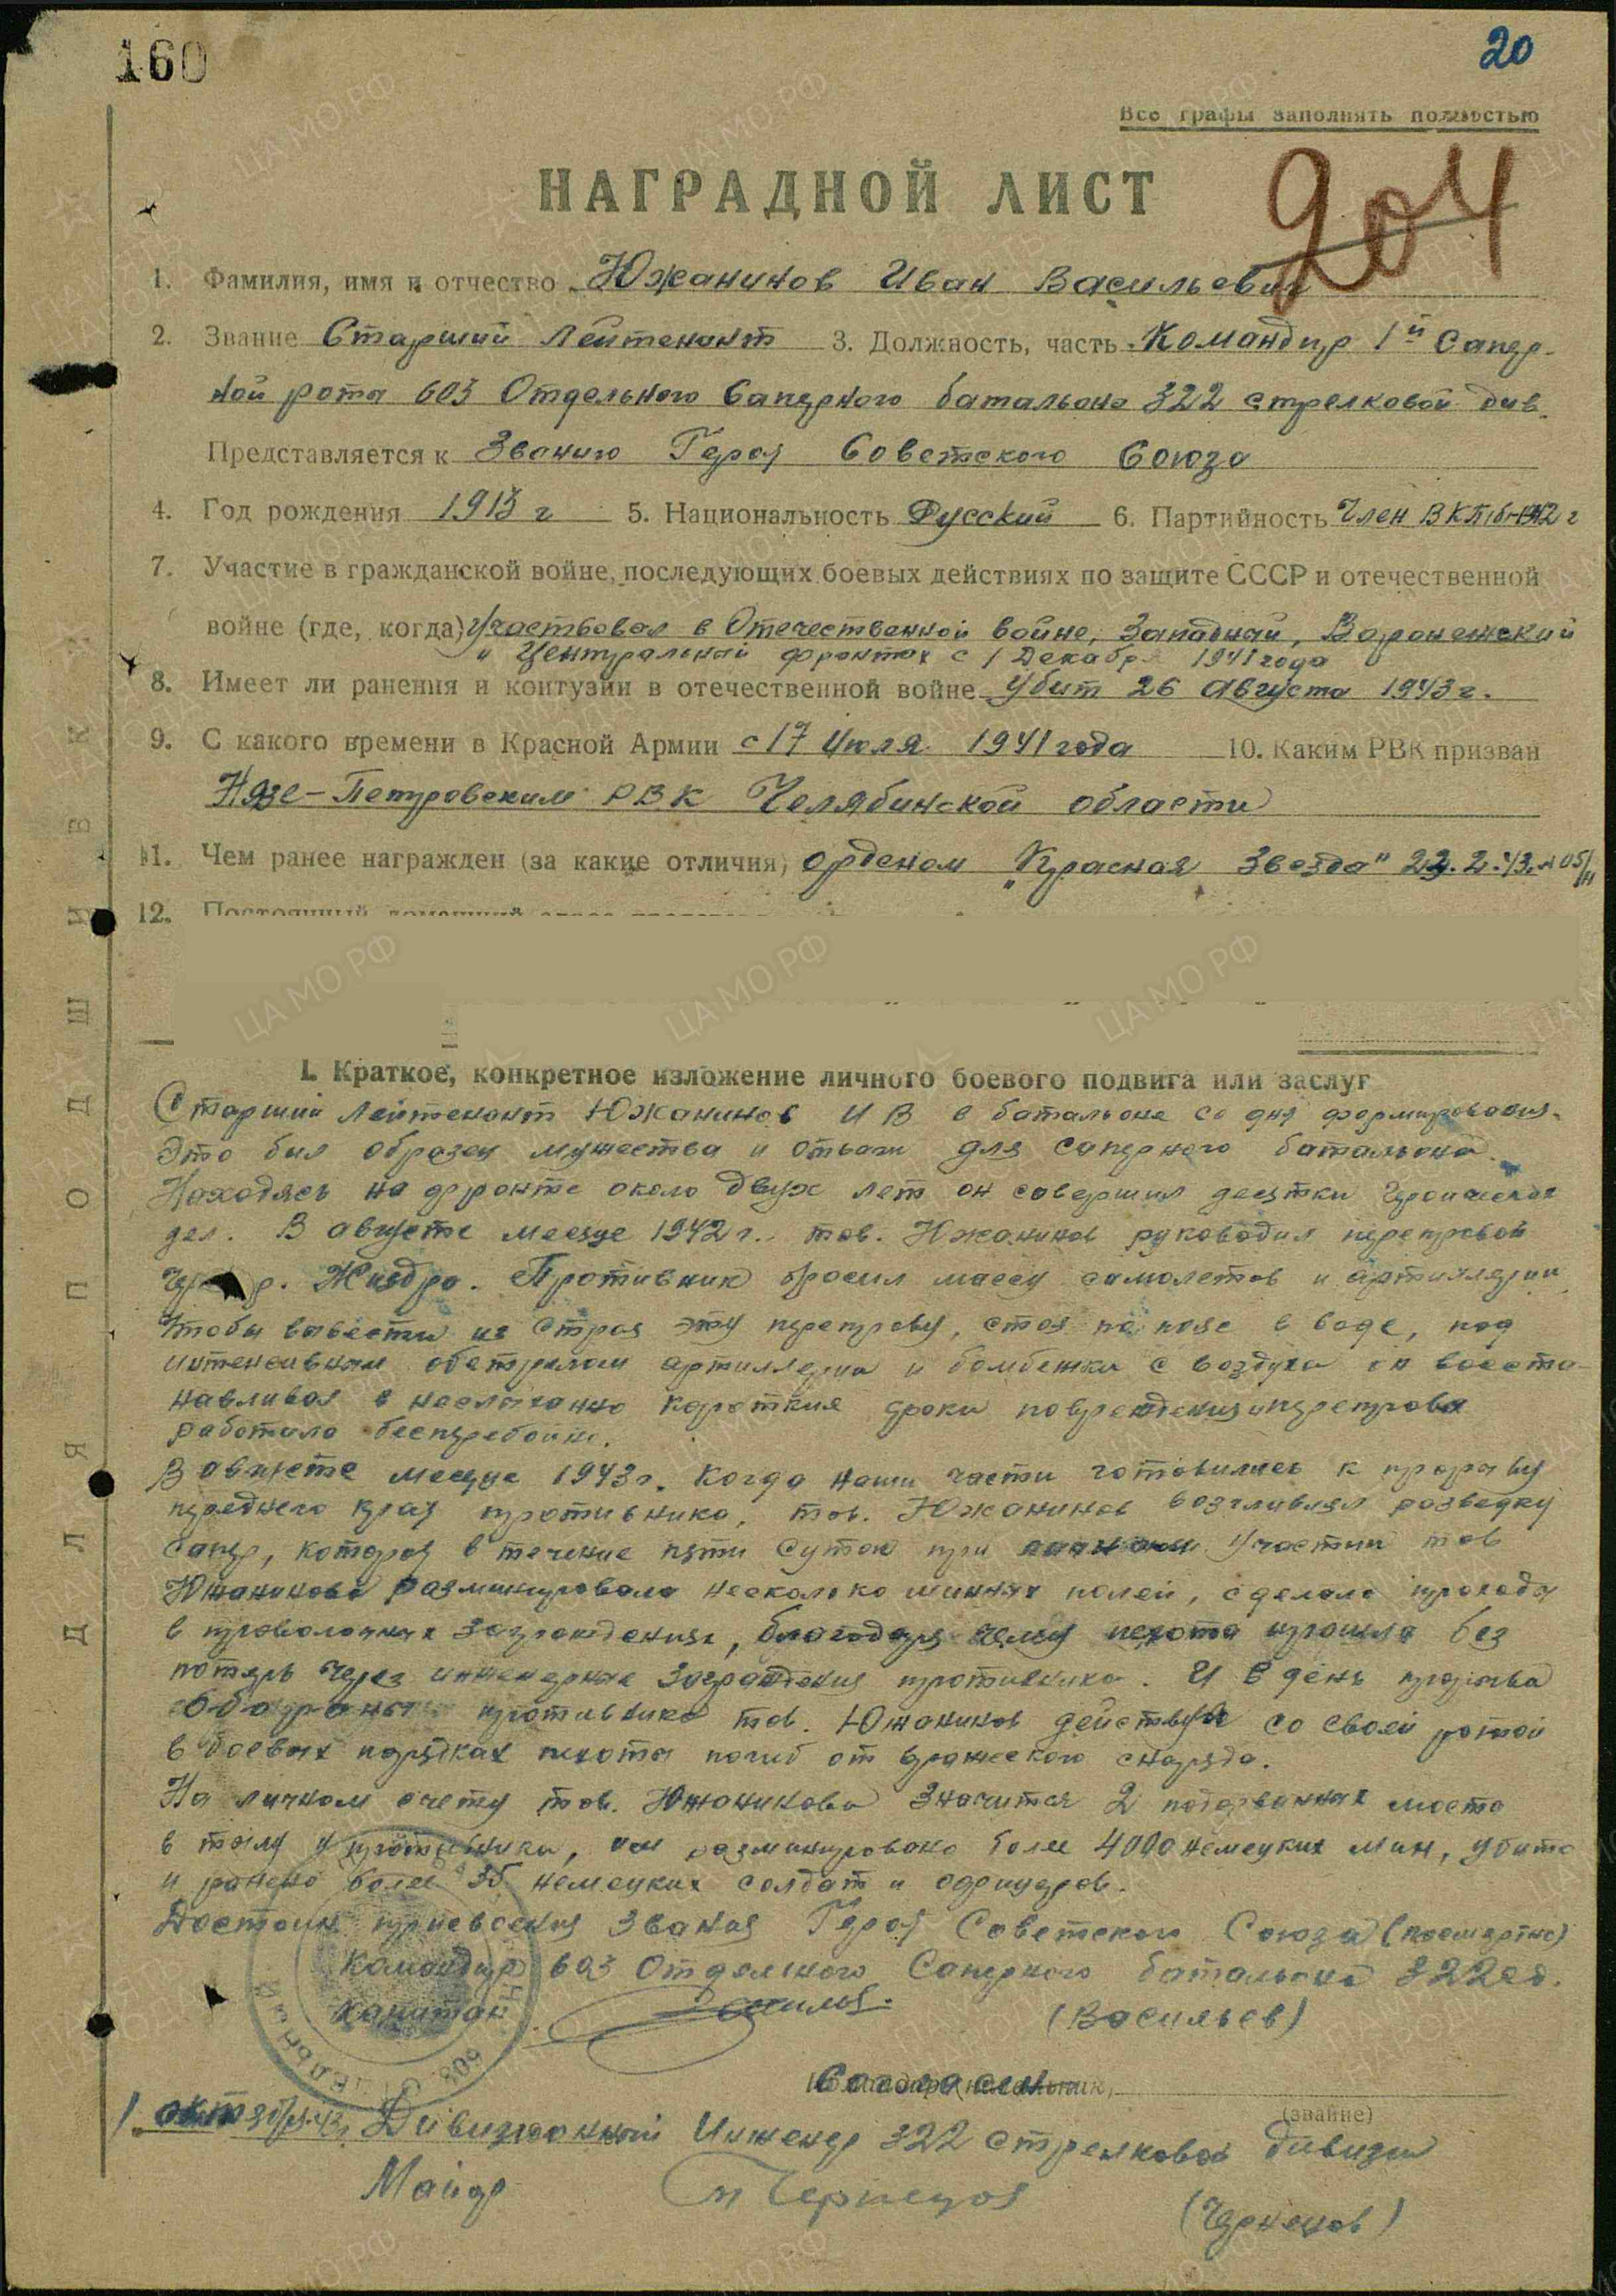 160
20
Все графы заполнять полностью
НАГРАДНОЙ ЛИСТ
204
1. Фамилия, имя и отчество Южанинов Иван Васильевич
2. Звание Старший лейтенант 3. Должность, часть Командир 1й Сапер-
ной роты 603 Отдельного Саперного батальона 322 стрелковой див.
Представляется к Званию Героя Советского Союза
4. Год рождения 1913 г 5. Национальность Русский 6. Партийность Член ВКП(б) 1942 г
7. Участие в гражданской войне, последующих боевых действиях по защите СССР и отечественной
войне (где, когда) Участвовал в Отечественной войне, Западный, Воронежский
и Центральный фронтах с 1 Декабр. 1941 года
8. Имеет ли ранения и контузии в отечественной войне Убит 26 Августа 1943 г.
9. С какого времени в Красной Армии с 17 Июля 1941 года 10. Каким РВК призван
Нязе-Петровским РВК Челябинской области
11. Чем ранее награжден (за какие отличия) орденом "Красная Звезда" 23.2.43. № 05/н
12. Постоянный домашний адрес
I. Краткое, конкретное изложение личного боевого подвига или заслуг
Старший лейтенант Южанинов И В в батальоне со дня формирования.
Это был образец мужества и отваги для саперного батальона.
Находясь на фронте около двух лет он совершил десятки героических
дел. В августе месяце 1942 г. тов. Южанинов руководил переправой
через р. Жиздра. Противник бросил массу самолетов и артиллерии
чтобы вывести из строя эту переправу, стоя по пояс в воде, под
интенсивным обстрелом артиллерии и бомбежки с воздуха он восста-
навливал в неслыханно короткие сроки повреждения и переправа
работала бесперебойно.
В августе месяце 1943 г. когда наши части готовились к прорыву
переднего края противника, тов. Южанинов возглавлял разведку
сапер, которая в течение пяти суток при личном участии тов
Южанинова разминировала несколько минных полей, сделала проходы
в проволочных заграждениях, благодаря чему пехота прошла без
потерь через инженерные заграждения противника. И в день прорыва
обороны противника тов. Южанинов действуя со своей ротой
в боевых порядках пехоты погиб от вражеского снаряда.
На личном счету тов. Южанинова значится 2 подорванных моста
в тылу у противника, им разминировано более 4000 немецких мин, убито
и ранено более 35 немецких солдат и офицеров.
Достоин присвоения звания Героя Советского Союза (посмертно)
Командир 603 Отдельного Саперного батальона 322 сд.
Капитан
(Васильев)
Согласен
(звание)
Дивизионный Инженер 322 стрелковой дивизии
Майор
(Чернецов)
ДЛЯ ПОДШИВКИ